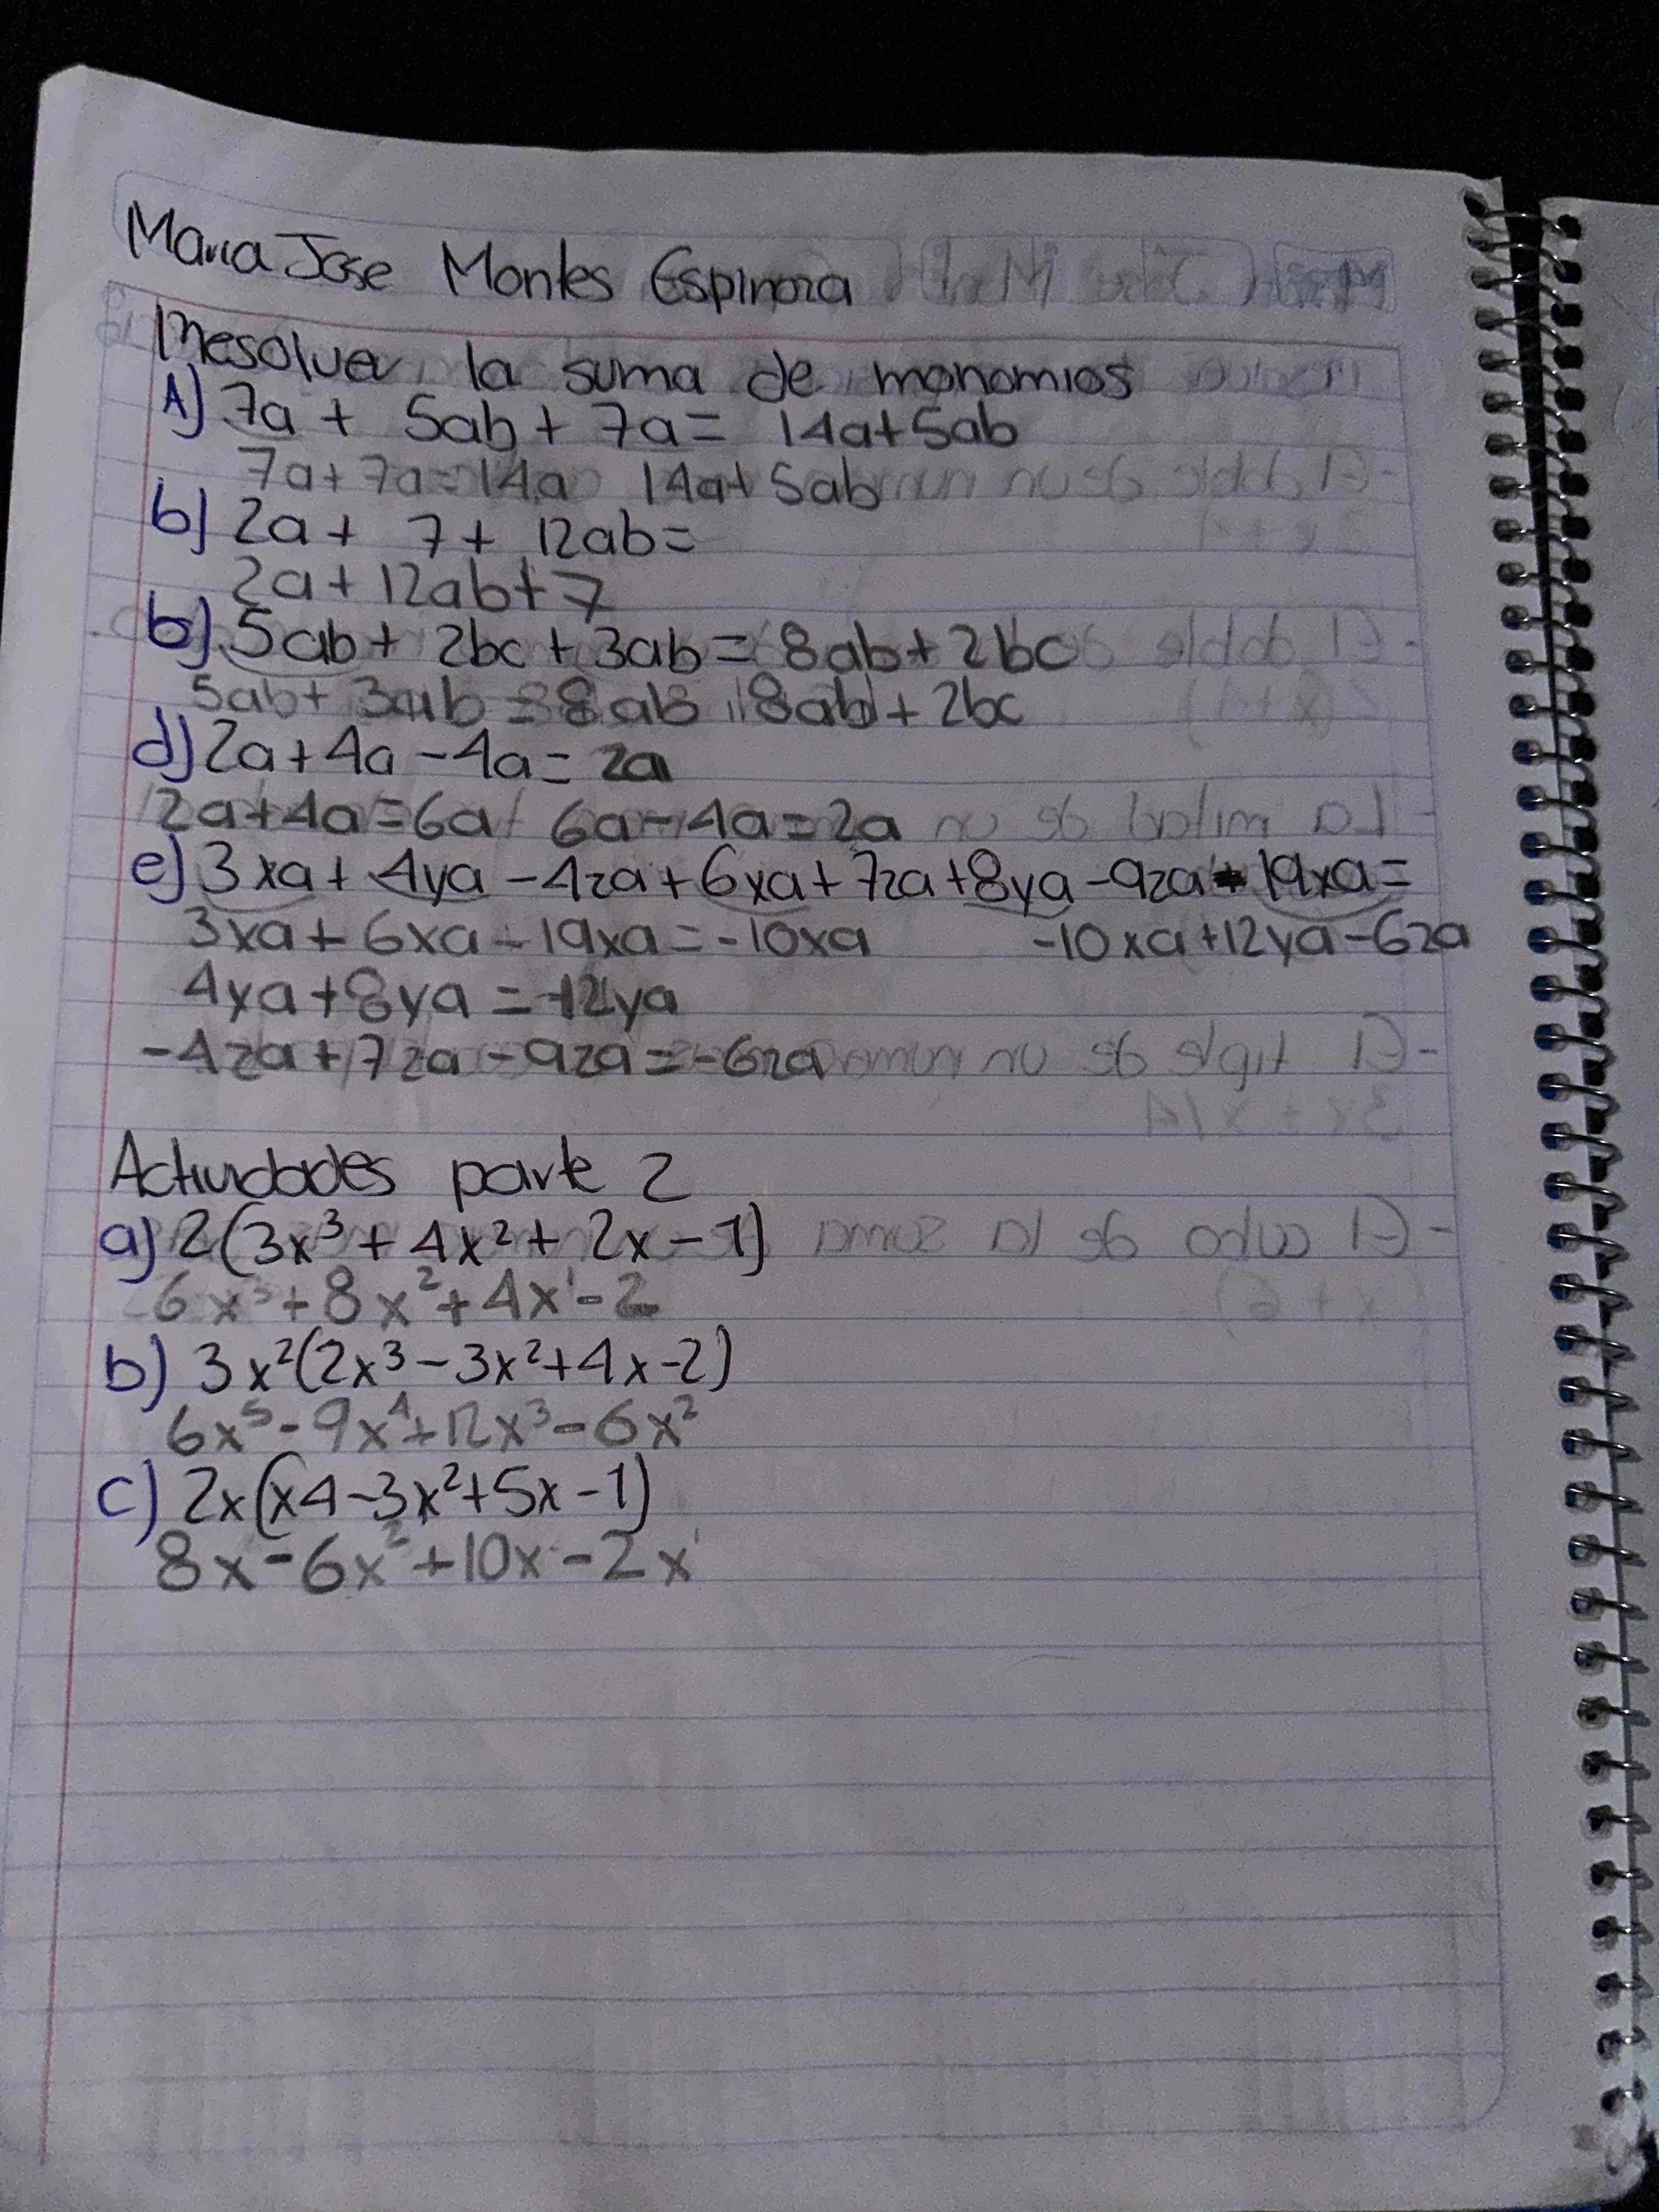 Maria Jose Montes Espinoza
Resolver la suma de monomios
A) 7a + 5ab + 7a = 14a+5ab
7a+7a=14a 14a+5ab
b) 2a + 7 + 12ab =
2a+12ab+7
b) 5ab + 2bc + 3ab = 8ab + 2bc
5ab+ 3ab = 8ab 8ab + 2bc
d) 2a+4a-4a= 2a
2a+4a=6a 6a-4a=2a
e) 3xa+ 4ya -4za+6xa+7za+8ya-9za-19xa=
3xa+6xa-19xa=-10xa -10xa+12ya-6za
4ya+8ya = 12ya
-4za+7za-9za=-6za
Actividades parte 2
a) 2(3x³+4x²+ 2x-1)
6x³+8x²+4x¹-2
b) 3x²(2x³-3x²+4x-2)
6x⁵-9x⁴+12x³-6x²
c) 2x(x4-3x²+5x-1)
8x-6x²+10x-2x¹